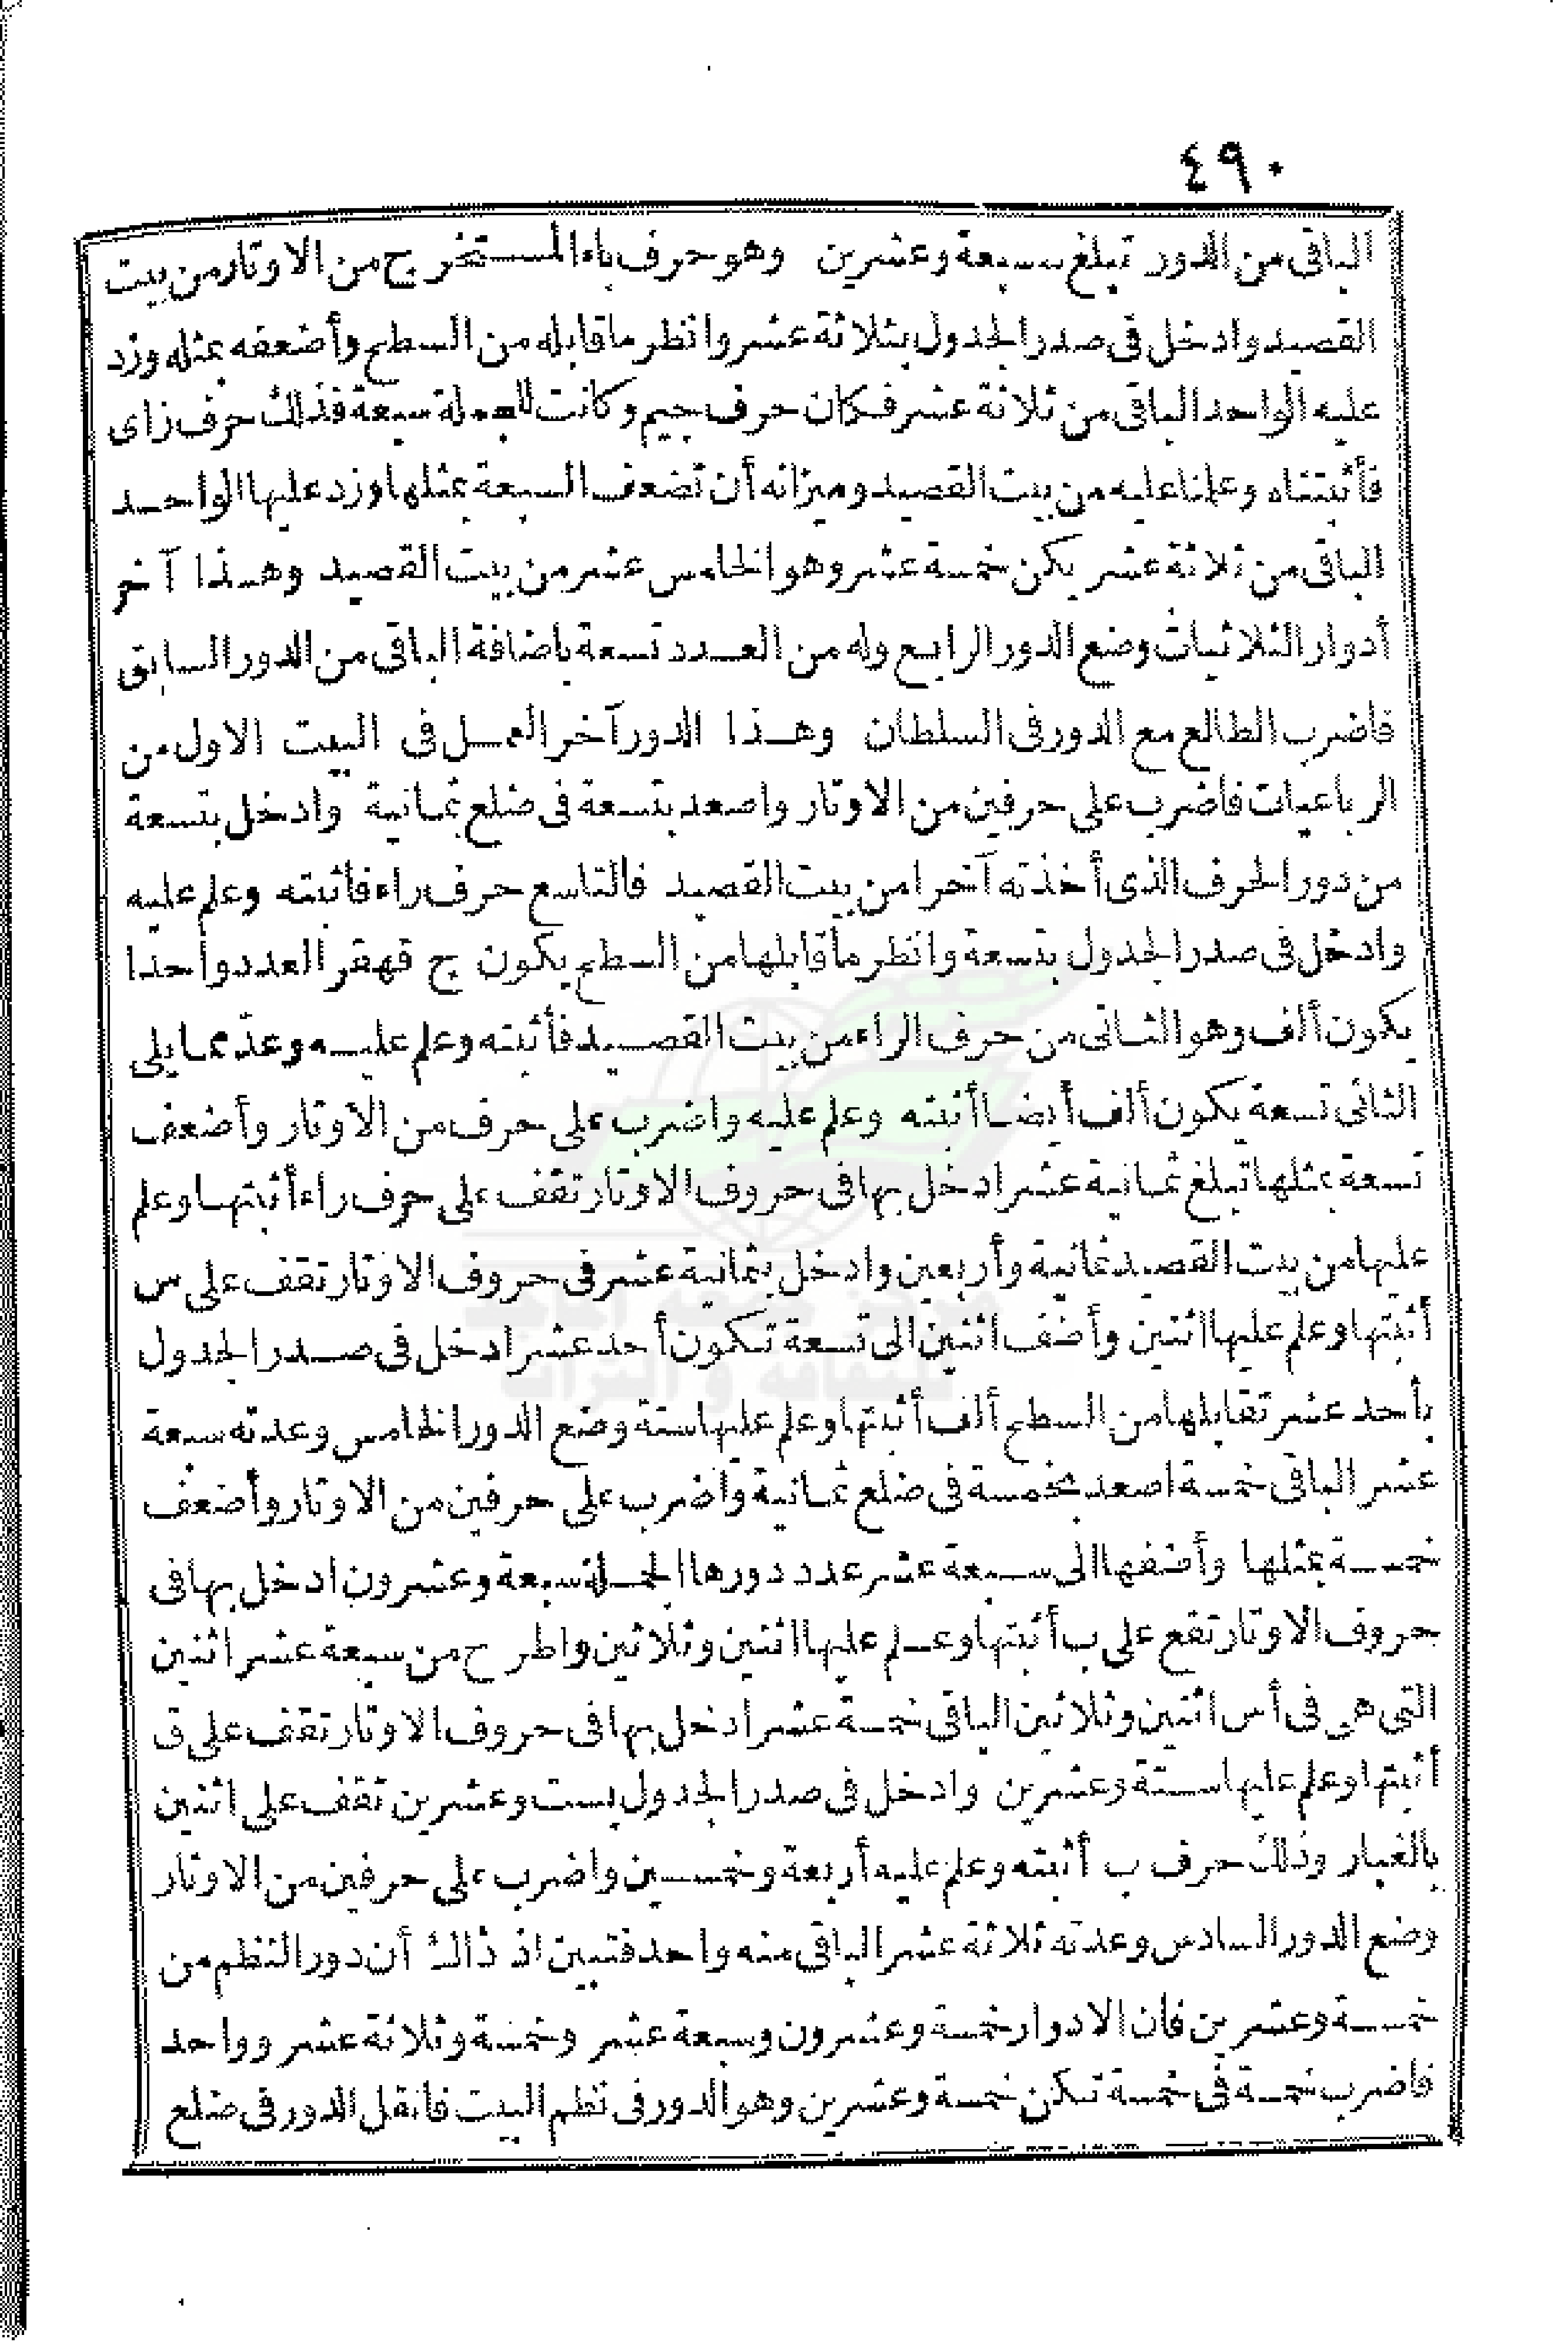 ٤٩٠
الباقى من الدور تبلغ سبعة وعشرين وهو حرف باء المستخرج من الاوتار من بيت
القصيد وادخل فى صدر الجدول بثلاثة عشر وانظر ما قابله من السطح وأضعفه بمثله وزد
عليه الواحد الباقى من ثلاثة عشر فكان حرف جيم وكانت للجملة سبعة فذلك حرف زاى
فأثبتناه وعلمنا عليه من بيت القصيد وميزانه أن تضعف السبعة بمثلها وزد عليها الواحد
الباقى من ثلاثة عشر يكن خمسة عشر وهو الخامس عشر من بيت القصيد وهذا آخر
أدوار الثلاثيات وضع الدور الرابع وله من العدد تسعة باضافة الباقى من الدور السابق
فاضرب الطالع مع الدور فى السلطان وهذا الدور آخر العمل فى البيت الاول من
الرباعيات فاضرب على حرفين من الاوتار واصعد بتسعة فى ضلع ثمانية وادخل بتسعة
من دور الحرف الذى أخذته آخرا من بيت القصيد فالتاسع حرف راء فاثبته وعلم عليه
وادخل فى صدر الجدول بتسعة وانظر ما قابلها من السطح يكون ج قهقر العدد واحدا
يكون ألف وهو الثانى من حرف الراء من بيت القصيد فأثبته وعلم عليه وعدّ مما يلى
الثانى تسعة يكون ألف أيضا أثبته وعلم عليه واضرب على حرف من الاوتار وأضعف
تسعة بمثلها تبلغ ثمانية عشر ادخل بها فى حروف الاوتار تقف على حرف راء أثبتها وعلم
عليها من بيت القصيد ثمانية وأربعين وادخل بثمانية عشر فى حروف الاوتار تقف على س
أثبتها وعلم عليها اثنين وأضف اثنين الى تسعة تكون أحد عشر ادخل فى صدر الجدول
بأحد عشر تقابلها من السطح ألف أثبتها وعلم عليها ستة وضع الدور الخامس وعدته سبعة
عشر الباقى خمسة اصعد بخمسة فى ضلع ثمانية واضرب على حرفين من الاوتار وأضعف
خمسة بمثلها وأضفها الى سبعة عشر عدد دورها الجملة سبعة وعشرون ادخل بها فى
حروف الاوتار تقع على ب أثبتها وعلم عليها اثنين وثلاثين واطرح من سبعة عشر اثنين
التى هى فى أس اثنين وثلاثين الباقى خمسة عشر ادخل بها فى حروف الاوتار تقف على ق
أثبتها وعلم عليها ستة وعشرين وادخل فى صدر الجدول بست وعشرين تقف على اثنين
بالغبار وذلك حرف ب أثبته وعلم عليه أربعة وخمسين واضرب على حرفين من الاوتار
وضع الدور السادس وعدته ثلاثة عشر الباقى منه واحد فتبين اذ ذاك أن دور النظم من
خمسة وعشرين فان الادوار خمسة وعشرون وسبعة عشر وخمسة وثلاثة عشر وواحد
فاضرب خمسة فى خمسة تكن خمسة وعشرين وهو الدور فى نظم البيت فانقل الدور فى ضلع
مركز جمعة الماجد
للثقافة و التراث